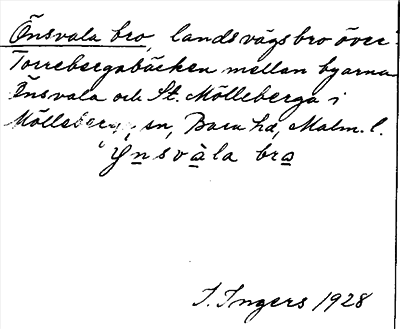 Önsvala bro, landsvägsbro över
Torrebergabäcken mellan byarna
Önsvala och St. Mölleberga i
Mölleberga sn, Bara hd, Malm. l.
Ynsvåla bro
I. Ingers 1928